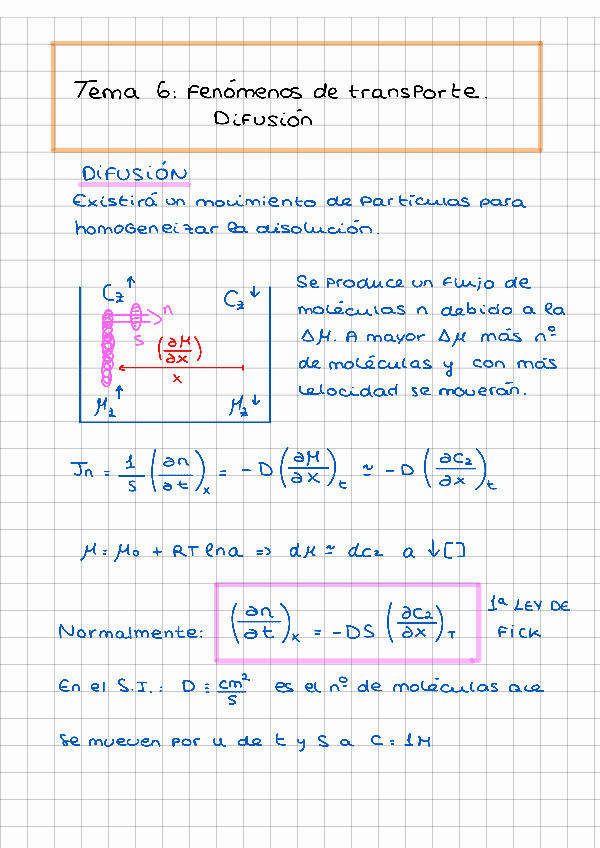 Tema 6: Fenómenos de transporte.
Difusión
DIFUSIÓN
Existirá un movimiento de partículas para
homogeneizar la disolución.
C₂↑
C₂↓
n
S
(∂μ/∂x)
x
μ₂↑
μ₂↓
Se produce un flujo de
moléculas n debido a la
Δμ. A mayor Δμ más nº
de moléculas y con más
velocidad se moverán.
Jn = 1/S (∂n/∂t)x = -D (∂μ/∂x)t ≃ -D (∂C₂/∂x)t
μ = μ₀ + RT lna => dμ ≃ dc₂ a ↓[]
Normalmente: (∂n/∂t)x = -DS (∂C₂/∂x)T
1ª LEY DE
FICK
En el S.I.: D ≡ cm²/s es el nº de moléculas que
se mueven por u de t y S a C = 1M